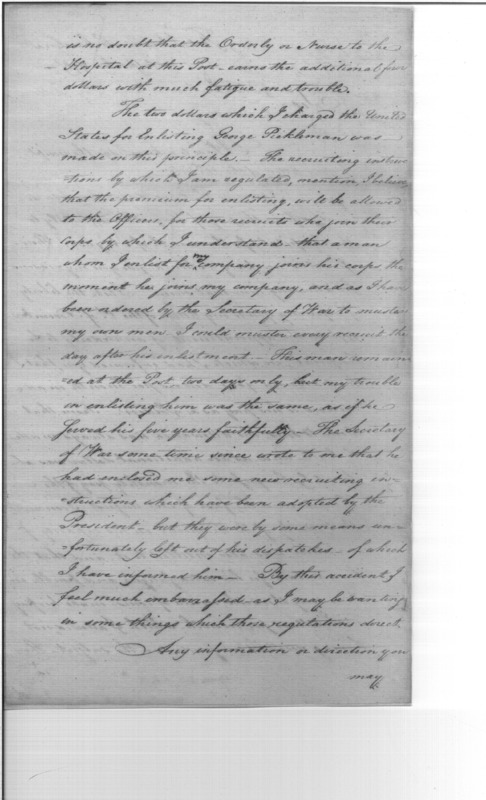 is no doubt that the Orderly or Nurse to the
Hospital at this Post - earns the additional few
dollars with much fatigue and trouble.
The two dollars which I charged the United
States for Enlisting George Pickleman was
made on this principle. - The recruiting instruc
tions by which I am regulated, mention, I believe
that the premium for enlisting, will be allowed
to the Officers, for those recruits who join their
Corps, by which I understand - that a man
whom I enlist for my company joins his corps the
moment he joins my company, and as I have
been ordered by the Secretary of War to muster
my own men I could muster every recruit the
day after his enlistment - This man remain
-ed at the Post two days only, but my trouble
on enlisting him was the same, as if he
served his five years faithfully - The Secretary
of War some time since wrote to me that he
had enclosed me some new recruiting in-
-structions which have been adopted by the
President - but they were by some means un-
-fortunately left out of his dispatches - of which
I have informed him - By this accident, I
feel much embarrassed - as I may be wanting
in some things which those regulations direct.
Any information or direction you
may